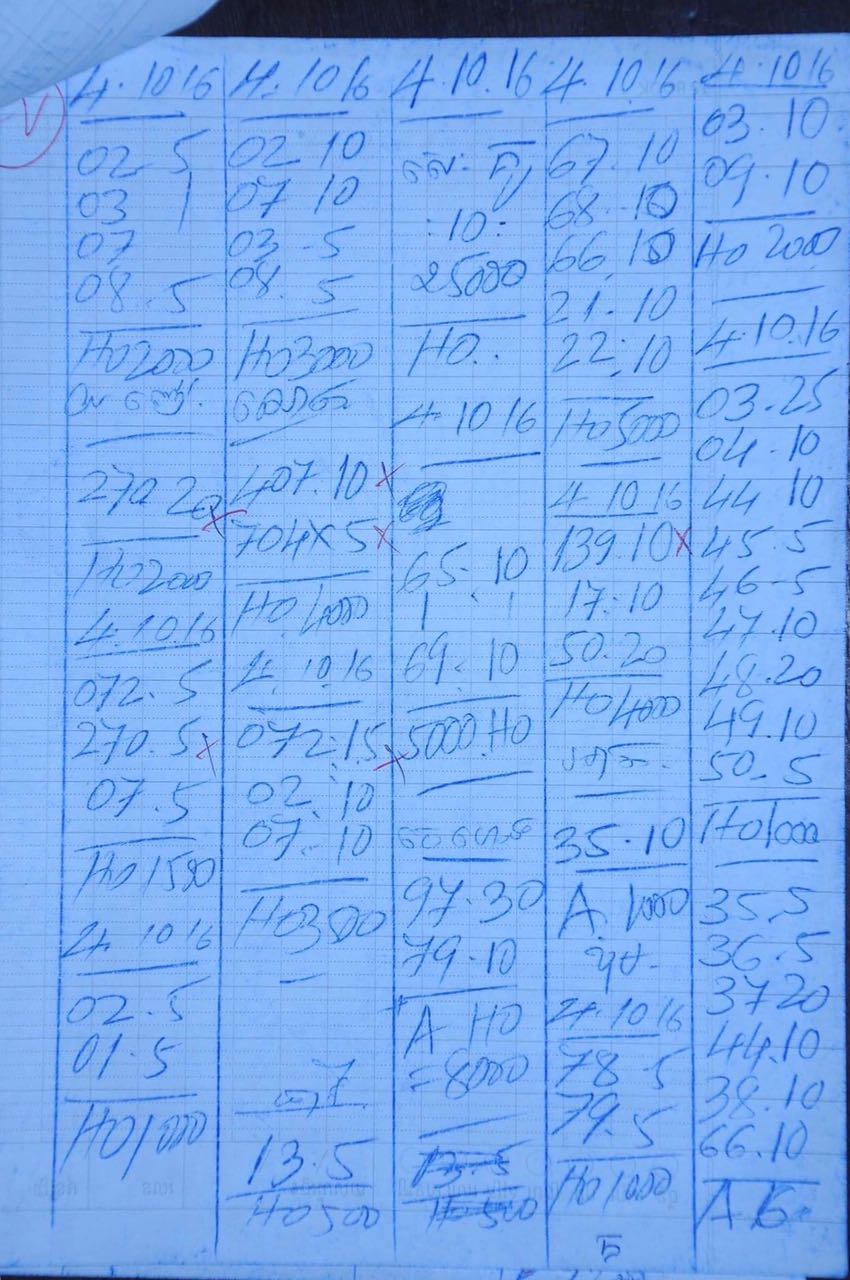 4.10 16
02 5
03 |
07
08.5
Ho 2000
270 20
Ho 2000
4.10.16
072.5
270.5
07.5
Ho 1500
4.10 16
02.5
01.5
Ho 1000
4.10 16
02 10
07 10
03-5
08.5
Ho 3000
407.10
704x5
Ho 4000
4.10.16
072.15
02.10
07.10
Ho 3500
13.5
Ho 500
4.10.16
:10:
25000
HO..
4.10 16
65.10
| |
69.10
5000.HO
97.30
79.10
A HO
=8000
4.10 16
67.10
68.10
66.10
21.10
22.10
Ho 5000
4 10 16
139.10
17.10
50.20
Ho 4000
35.10
A. 1000
4.10 16
78 5
79.5
Ho 1000
4.10 16
03.10
09.10
Ho 2000
4.10.16
03.25
04.10
44 10
45.5
46-5
47.10
48.20
49.10
50.5
Ho 1000
35.5
36.5
37 20
44.10
38.10
66.10